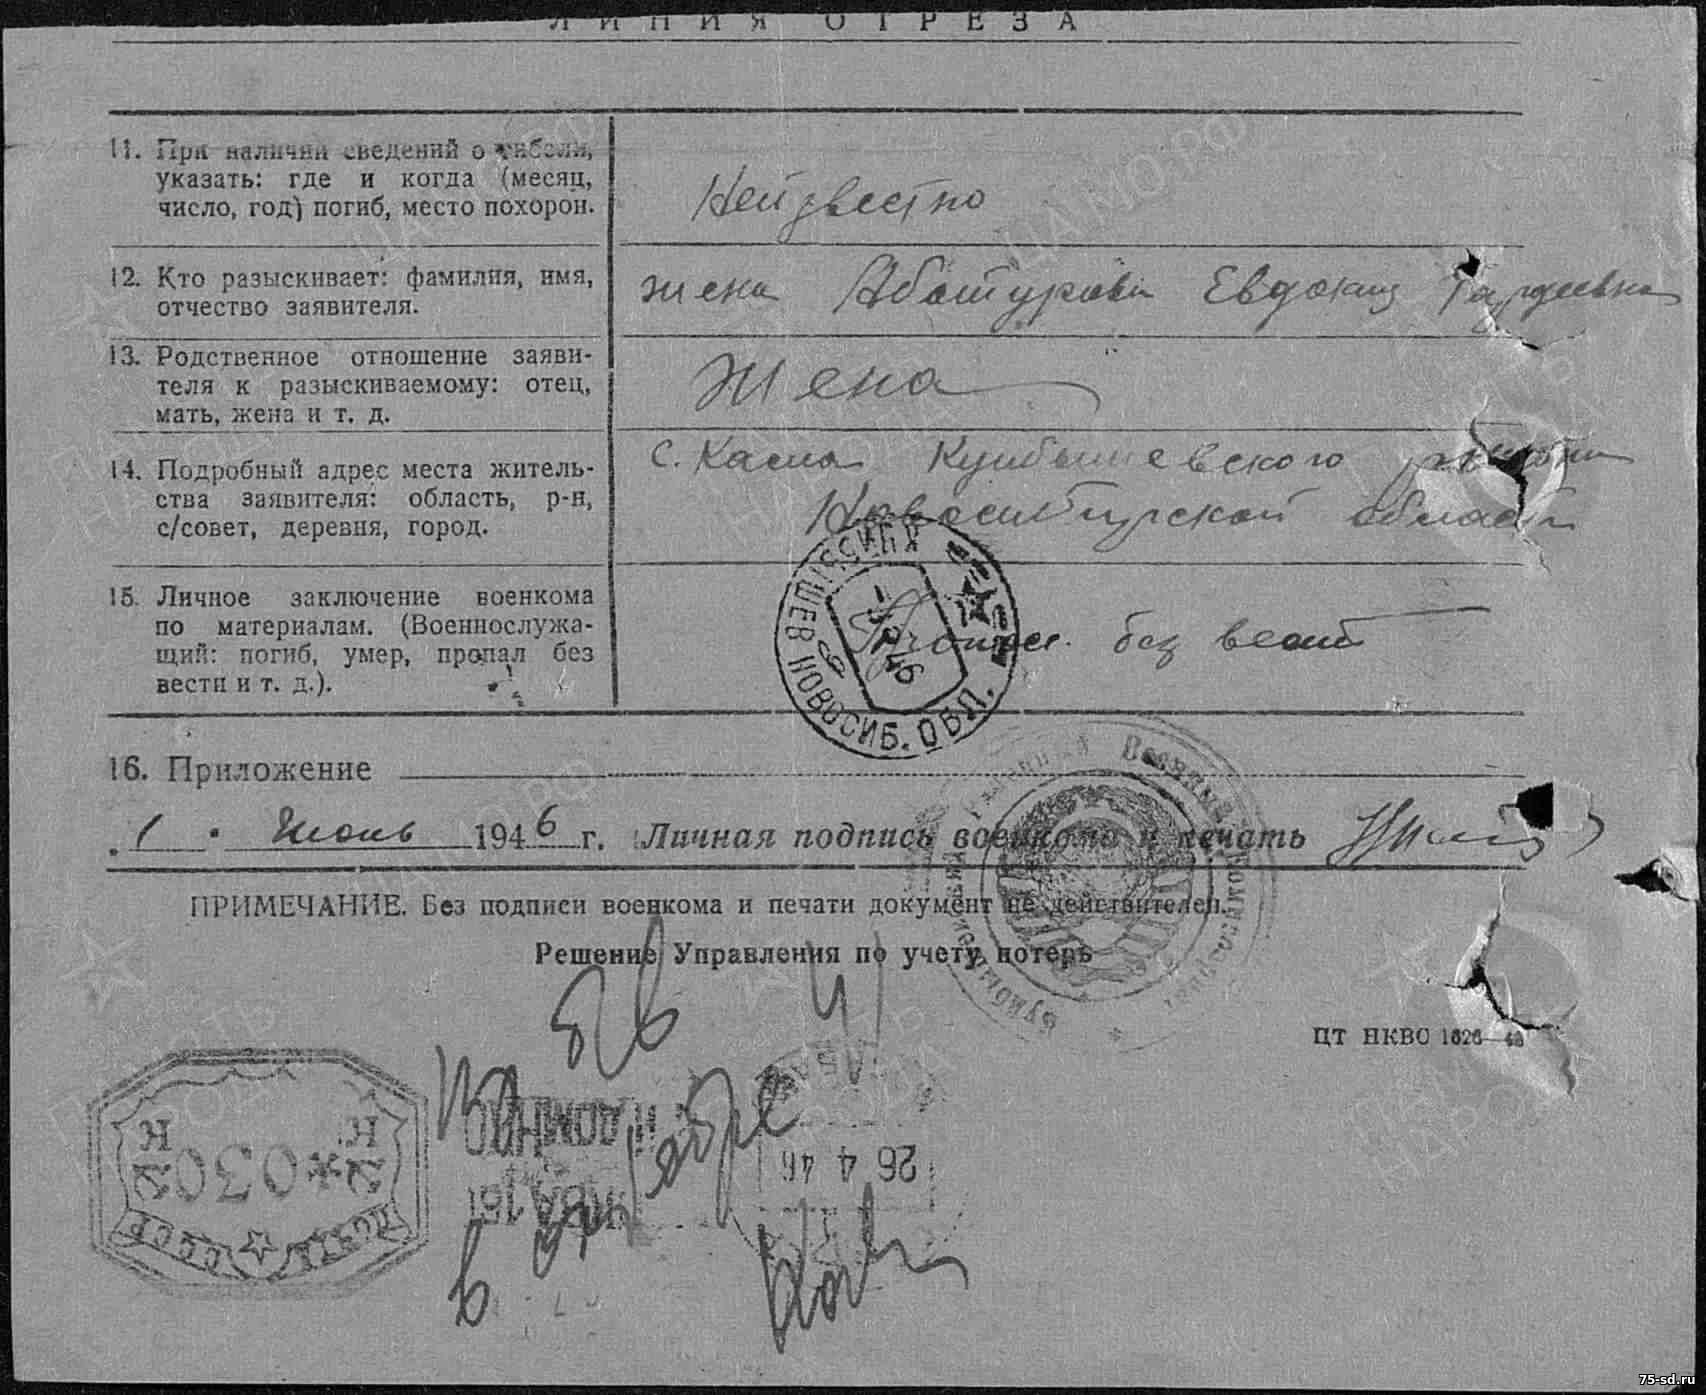 ЛИНИЯ ОТРЕЗА
11. При наличии сведений о гибели,
указать: где и когда (месяц,
число, год) погиб, место похорон.
Неизвестно
12. Кто разыскивает: фамилия, имя,
отчество заявителя.
жена Абатурова Евдокия Гордеевна
13. Родственное отношение заяви-
теля к разыскиваемому: отец,
мать, жена и т. д.
Жена
14. Подробный адрес места житель-
ства заявителя: область, р-н,
с/совет, деревня, город.
с. Касма Куйбышевского района
Новосибирской области
15. Личное заключение военкома
по материалам. (Военнослужа-
щий: погиб, умер, пропал без
вести и т. д.).
без вести
КУЙБЫШЕВ НОВОСИБ. ОБЛ.
46
16. Приложение
1. Июль 1946 г. Личная подпись военкома и печать
ПРИМЕЧАНИЕ. Без подписи военкома и печати документ не действителен.
Решение Управления по учету потерь
ЦТ НКВО 1626
26 4 46
030
ПОЧТА СССР
75-sd.ru